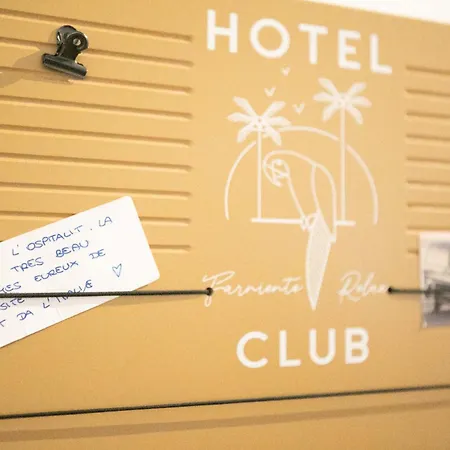 HOTEL
Farniente Relax
CLUB
L'OSPITALIT. LA
TRES BEAU
EUREUX DE
SITE
DA L'ITALIE